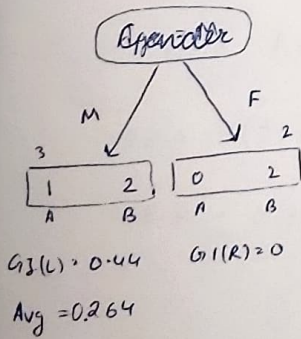 M F
3 2
1 2 0 2
A B A B
GI(L) = 0.44 GI(R) = 0
Avg = 0.264